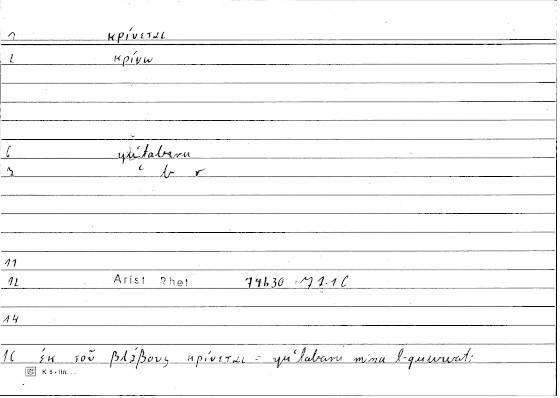 1 κρίνεται
2 κρίνω
6 yuʿtabaru
7 ʿ b r
11
12 Arist Rhet 74b30
14
16 ἐκ τοῦ βλάβους κρίνεται = yuʿtabaru mina l-quwwati
K 5 - lin. . .